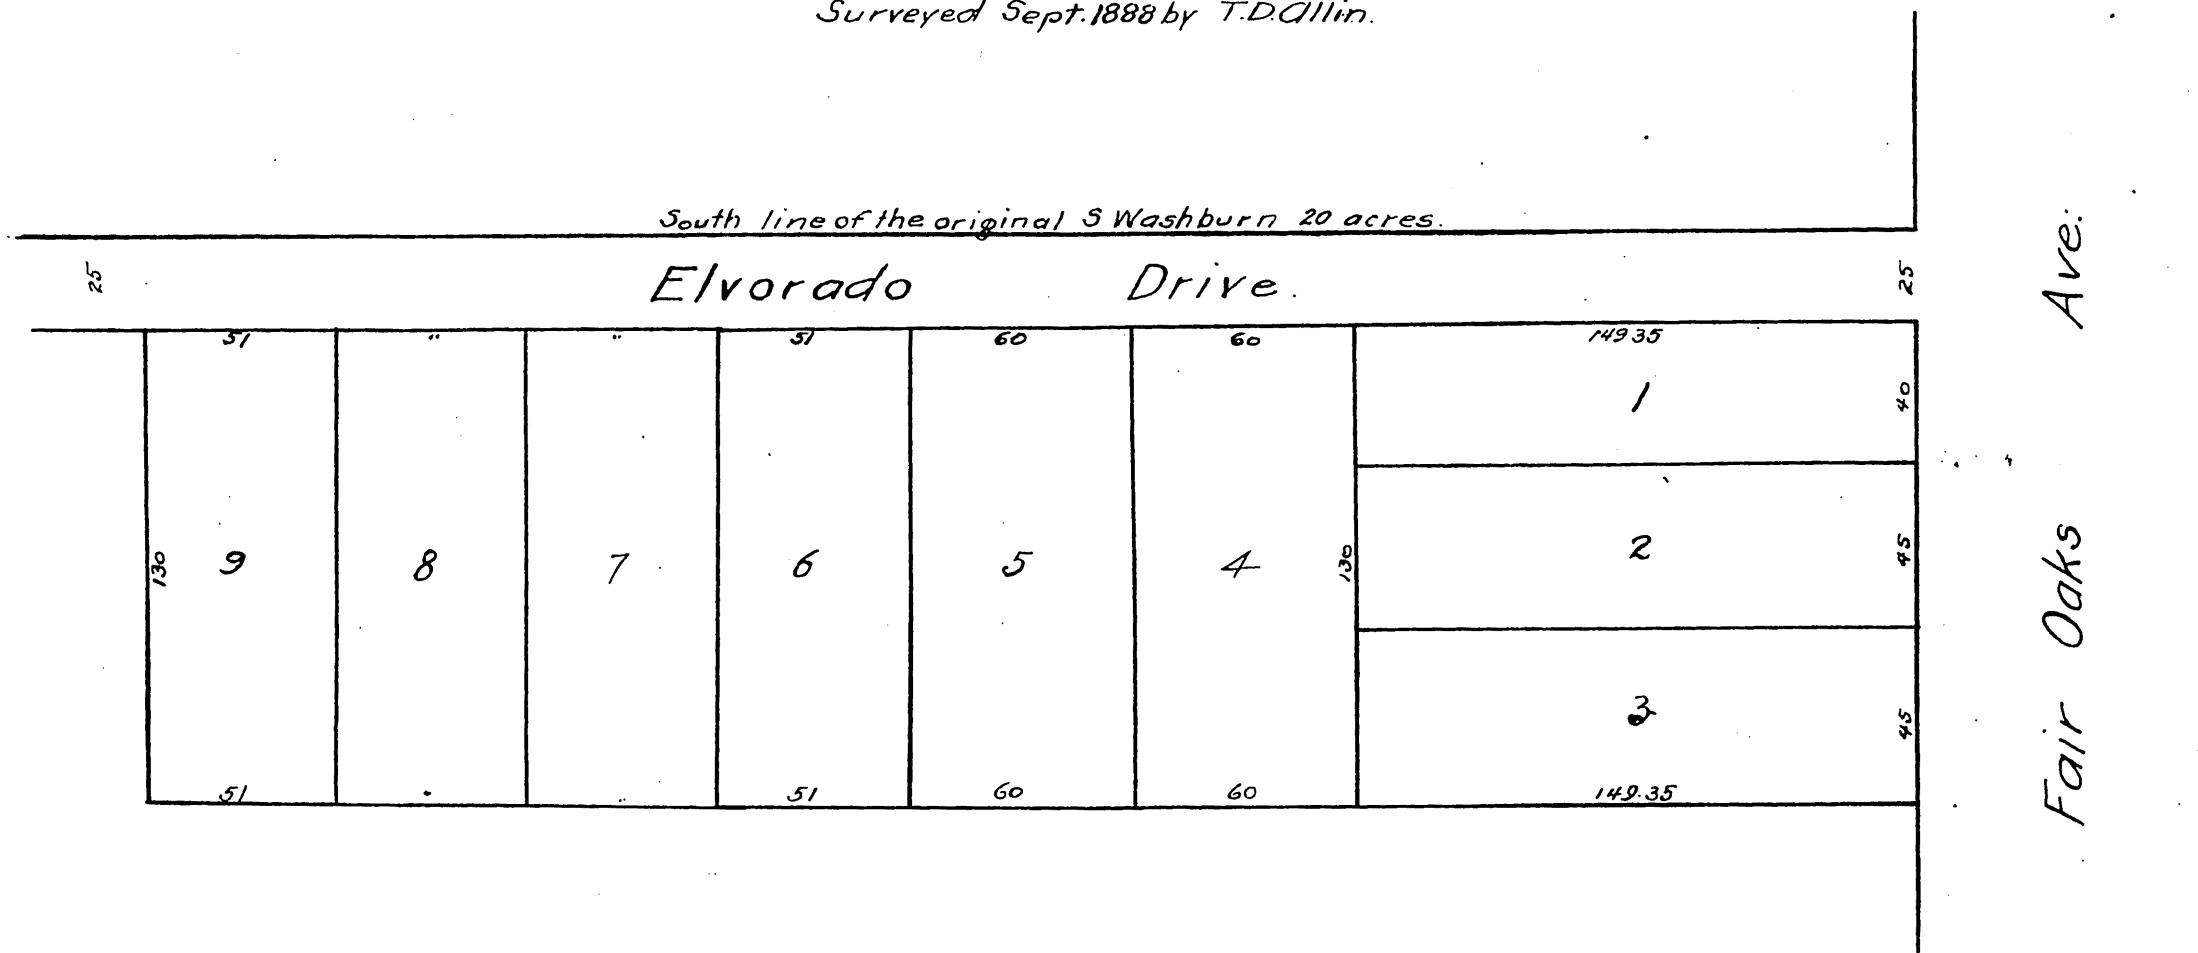 Surveyed Sept. 1888 by T.D. Allin.
South line of the original S Washburn 20 acres.
25
Elvorado Drive.
25
51 " " 51 60 60 149 35
1
40
9 8 7 6 5 4
130
130
2
45
3
45
51 " " 51 60 60 149.35
Fair Oaks Ave: